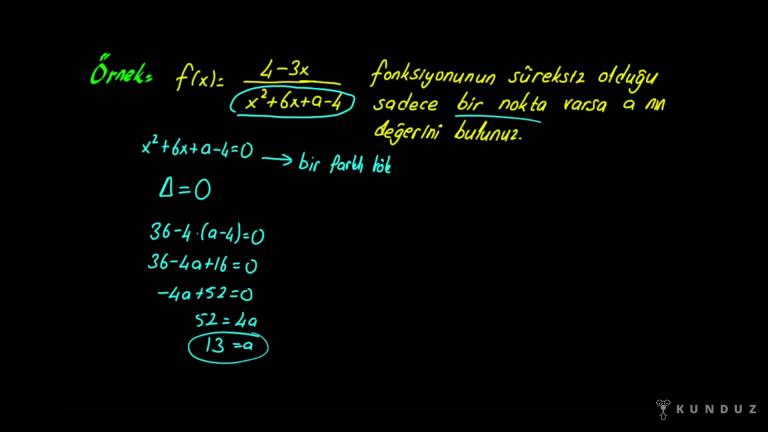 Örnek= f(x)= 4-3x / x²+6x+a-4 fonksiyonunun süreksiz olduğu
sadece bir nokta varsa a nın
değerini bulunuz.
x²+6x+a-4=0 → bir farklı kök
Δ=0
36-4.(a-4)=0
36-4a+16=0
-4a+52=0
52=4a
13=a
KUNDUZ